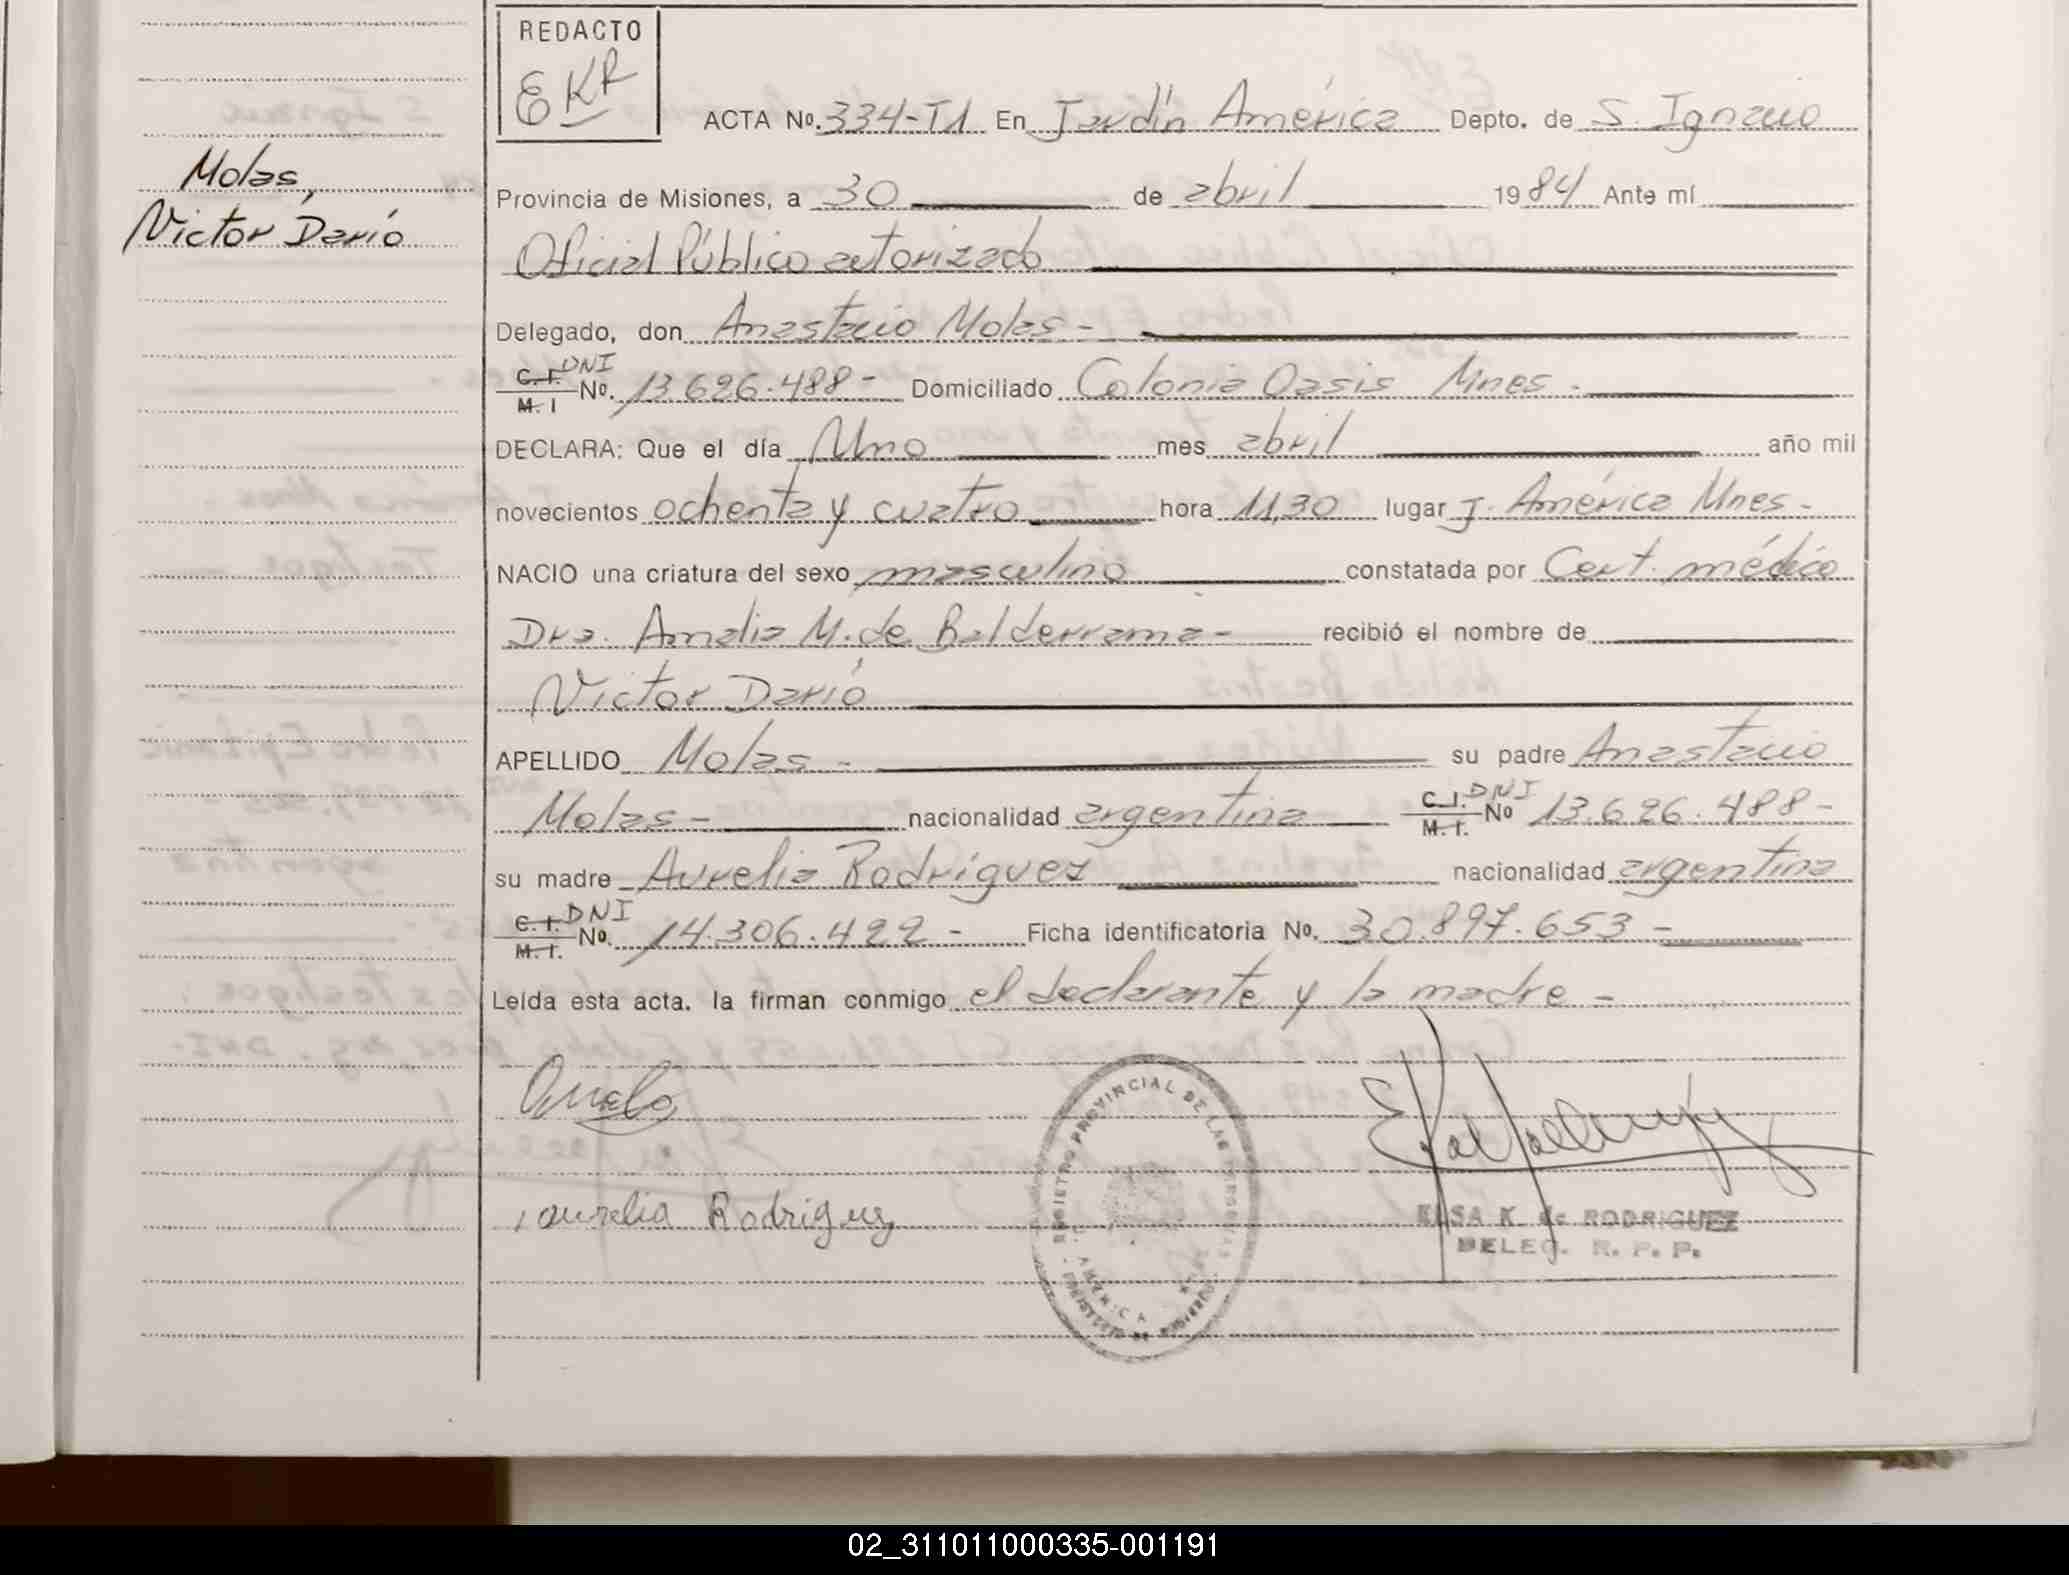 REDACTO
EKR
ACTA No. 334-T1 En Jardín América Depto. de S. Ignacio
Molas,
Victor Darío
Provincia de Misiones, a 30 de abril 1984 Ante mí
Oficial Público autorizado
Delegado, don Anastacio Molas -
C.I. DNI
M. I No. 13.626.488 - Domiciliado Colonia Oasis Mnes -
DECLARA: Que el día Uno mes abril año mil
novecientos ochenta y cuatro hora 11,30 lugar J. América Mnes -
NACIO una criatura del sexo masculino constatada por Cert. médico
Dra. Amalia M. de Balderrama - recibió el nombre de
Victor Darío
APELLIDO Molas - su padre Anastacio
Molas - nacionalidad argentina C.I. DNI M.I. No 13.626.488 -
su madre Aurelia Rodríguez nacionalidad argentina
C.I. DNI
M.I. No. 14.306.422 - Ficha identificatoria No. 30.897.653 -
Leída esta acta. la firman conmigo el declarante y la madre -
aurelia Rodriguez
REGISTRO PROVINCIAL DE LAS PERSONAS
AMERICA
ELSA K. de RODRIGUEZ
DELEG. R. P. P.
02_311011000335-001191